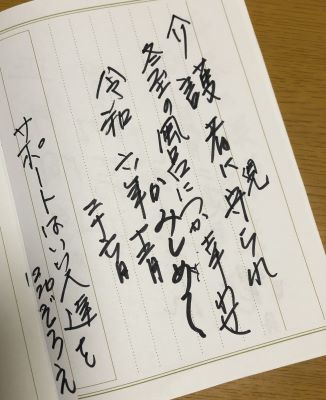 介護者に見守られ
冬至の風呂につかり幸せ
かみしめて
令和六年十二月
二十六日
サポートはいい人達を
品ぞろえ